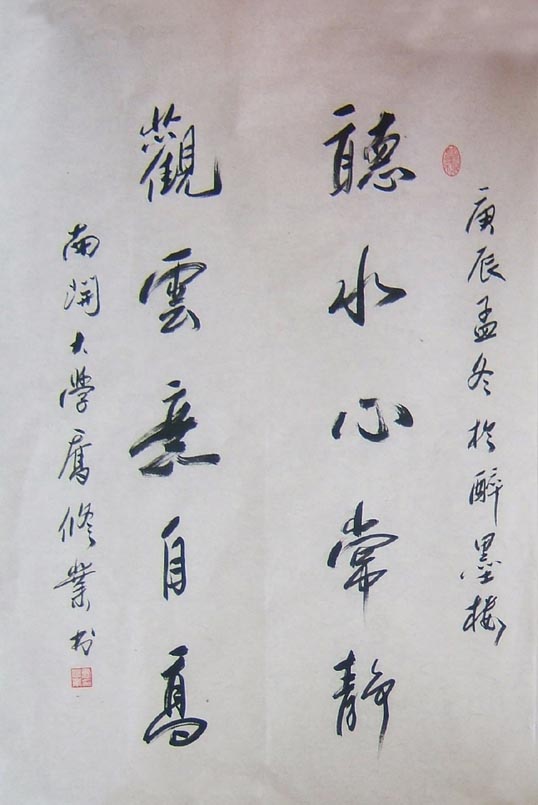 庚辰孟冬於醉墨樓
聽水心常靜
觀雲意自高
南開大學喬修業书